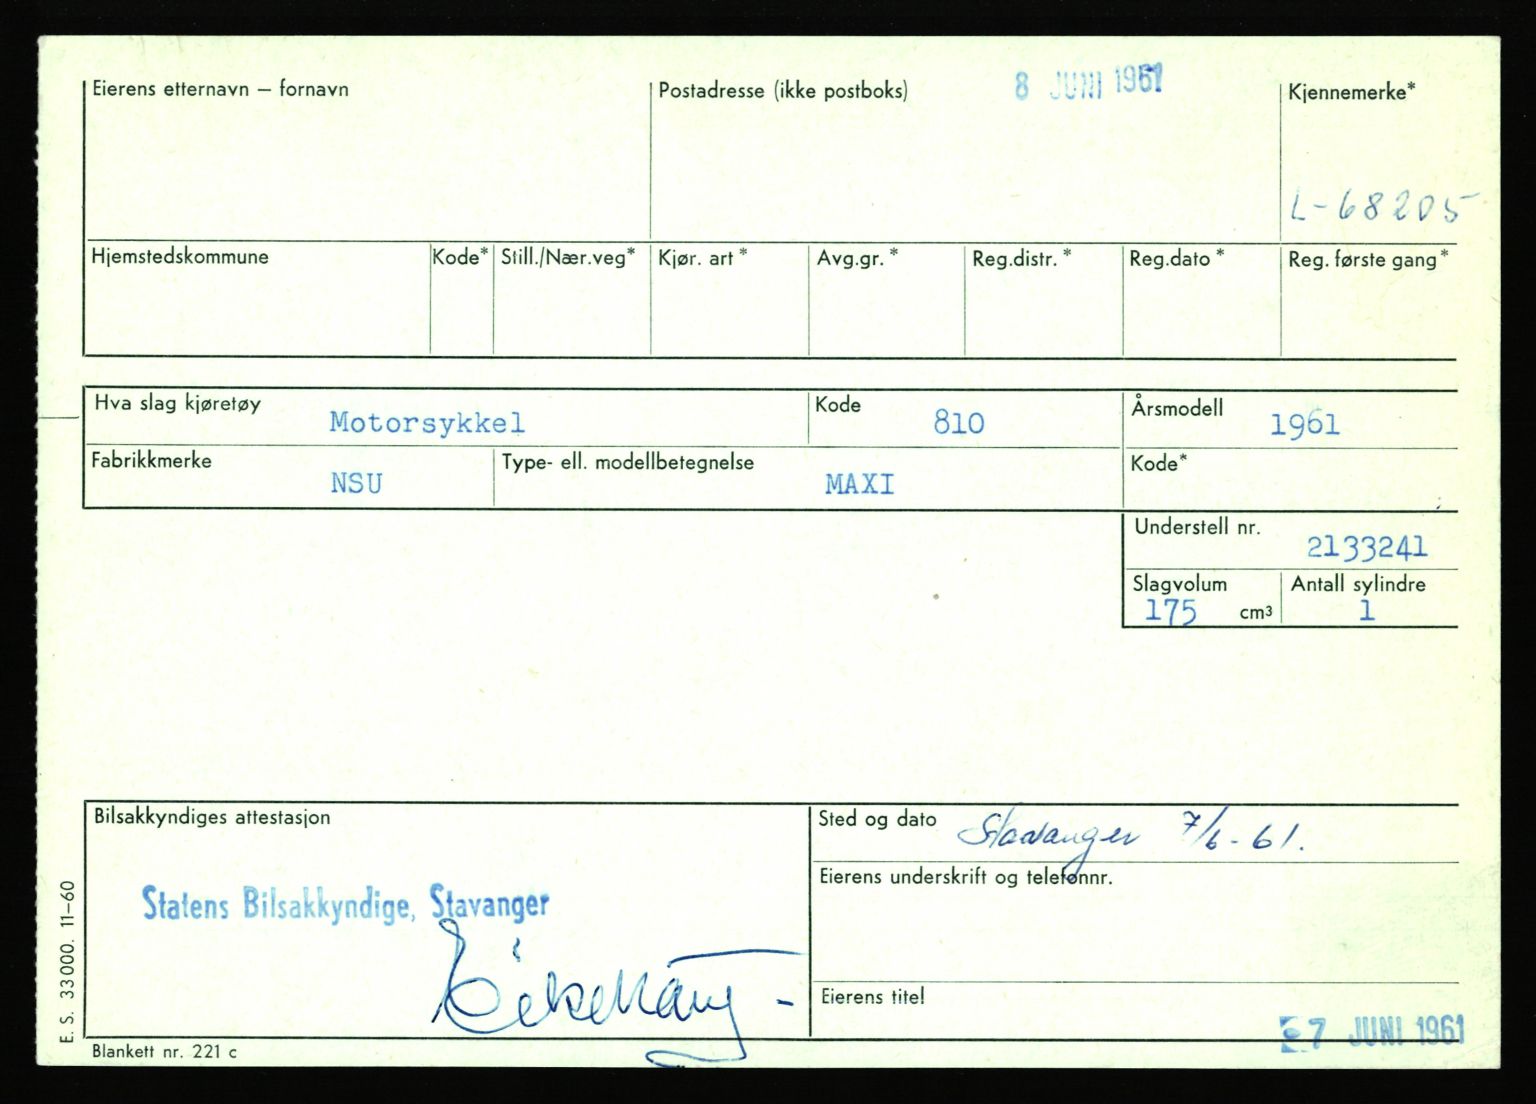 Eierens etternavn — fornavn
Postadresse (ikke postboks)
8 JUNI 1961
Kjennemerke*
L-68205
Hjemstedskommune
Kode*
Still./Nær.veg*
Kjør. art*
Avg.gr.*
Reg.distr.*
Reg.dato*
Reg. første gang*
Hva slag kjøretøy
Motorsykkel
Kode
810
Årsmodell
1961
Fabrikkmerke
NSU
Type- ell. modellbetegnelse
MAXI
Kode*
Understell nr.
2133241
Slagvolum
175 cm³
Antall sylindre
1
Bilsakkyndiges attestasjon
Statens Bilsakkyndige, Stavanger
Sted og dato
Stavanger 7/6-61.
Eierens underskrift og telefonnr.
Eierens titel
7 JUNI 1961
E. S. 33000. 11-60
Blankett nr. 221 c